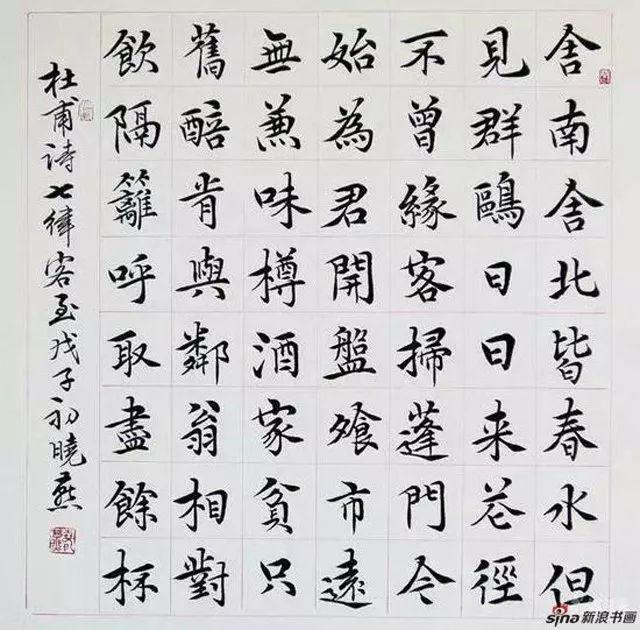 舍南舍北皆春水但
見群鷗日日来花徑
不曾緣客掃蓬門今
始為君開盤飧市遠
無兼味樽酒家貧只
舊醅肯與鄰翁相對
飲隔籬呼取盡餘杯
杜甫诗七律客至戊子初曉燕
sina新浪书画